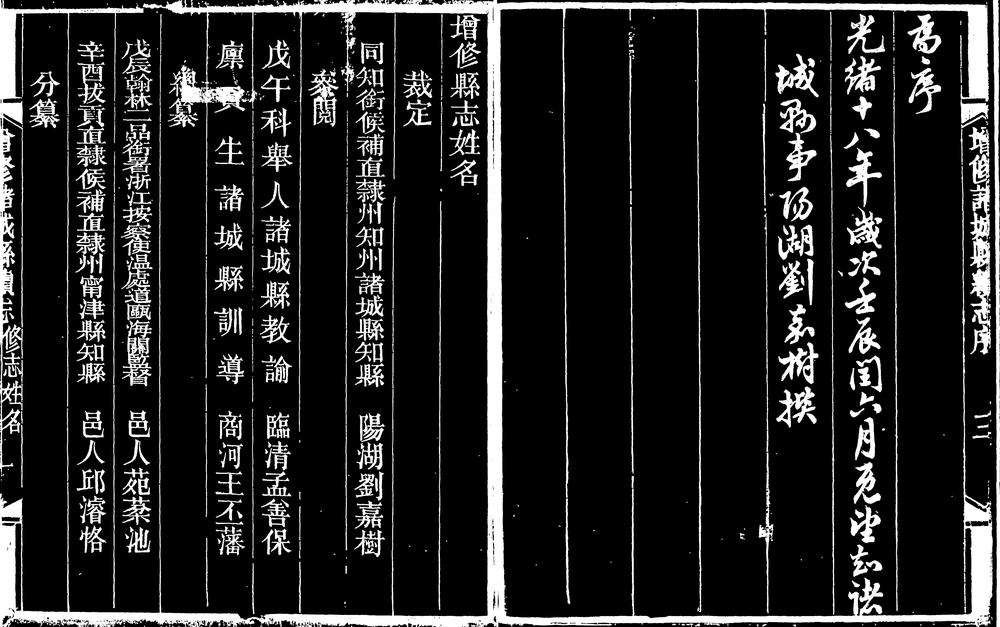 增修諸城縣續志序
三
為序
光緒十八年歲次壬辰閏六月既望知諸
城縣事陽湖劉嘉樹撰
增修縣志姓名
裁定
同知銜候補直隸州知州諸城縣知縣 陽湖劉嘉樹
參閱
戊午科舉人諸城縣教諭 臨清孟善保
廩貢生諸城縣訓導 商河王丕藩
總纂
戊辰翰林二品銜署浙江按察使溫處道甌海關監督 邑人苑棻池
辛酉拔貢直隸候補直隸州甯津縣知縣 邑人邱濬恪
分纂
增修諸城縣續志 修志姓名 一